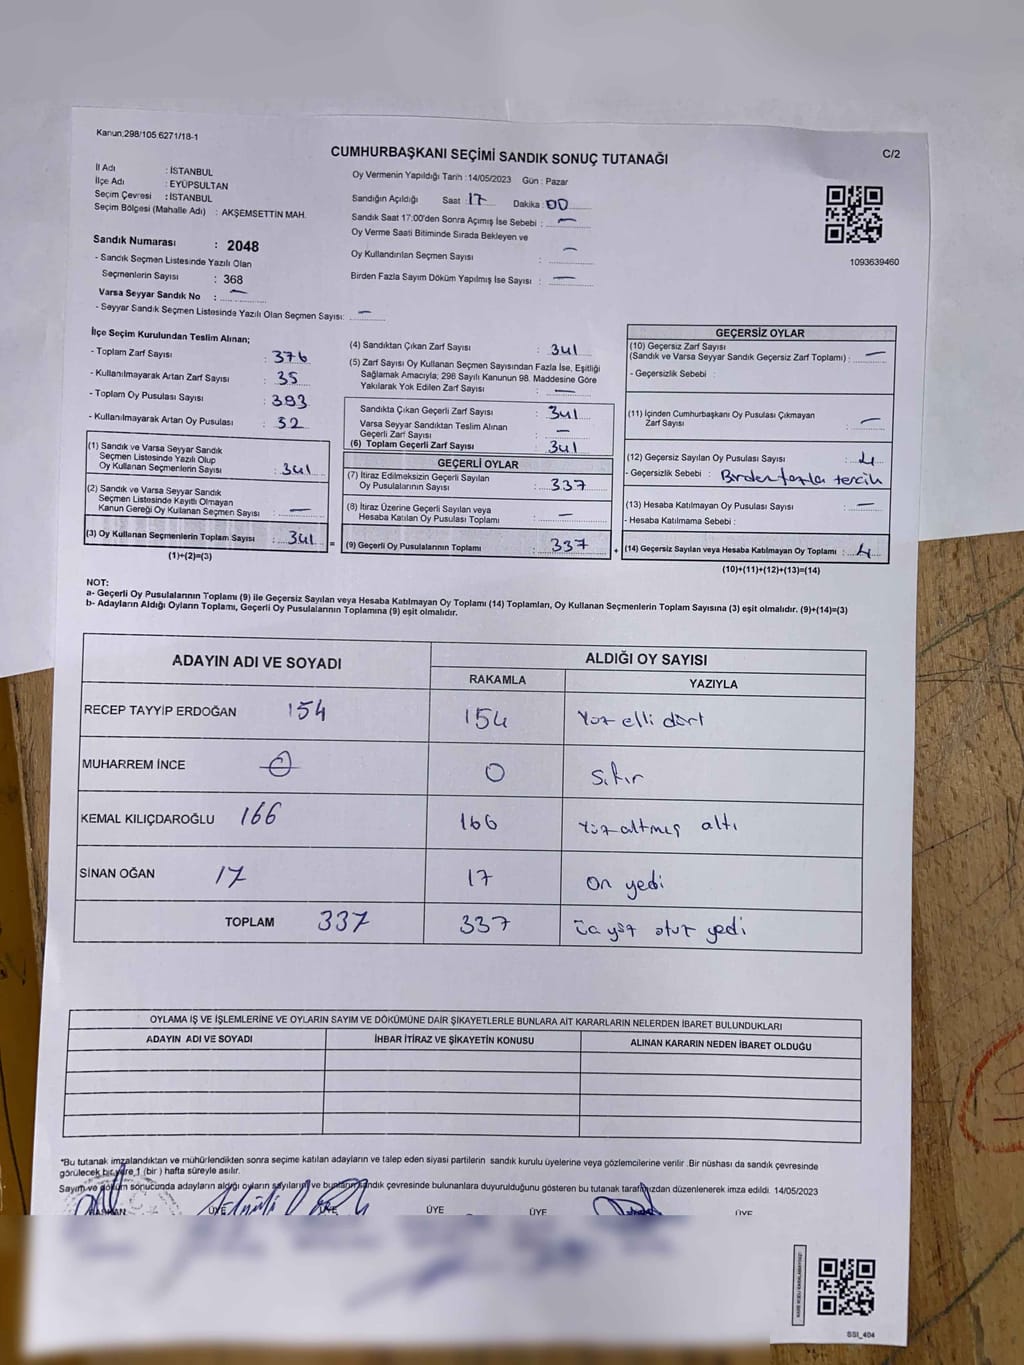 Kanun:298/105 6271/18-1
CUMHURBAŞKANI SEÇİMİ SANDIK SONUÇ TUTANAĞI
C/2
İl Adı : İSTANBUL
İlçe Adı : EYÜPSULTAN
Seçim Çevresi : İSTANBUL
Seçim Bölgesi (Mahalle Adı) : AKŞEMSETTİN MAH.
Sandık Numarası : 2048
- Sandık Seçmen Listesinde Yazılı Olan
Seçmenlerin Sayısı : 368
Varsa Seyyar Sandık No : —
- Seyyar Sandık Seçmen Listesinde Yazılı Olan Seçmen Sayısı: —
Oy Vermenin Yapıldığı Tarih :14/05/2023 Gün : Pazar
Sandığın Açıldığı Saat : 17 Dakika : 00
Sandık Saat 17:00'den Sonra Açımış İse Sebebi : —
Oy Verme Saati Bitiminde Sırada Bekleyen ve
Oy Kullandırılan Seçmen Sayısı : —
Birden Fazla Sayım Döküm Yapılmış İse Sayısı : —
1093639460
İlçe Seçim Kurulundan Teslim Alınan;
- Toplam Zarf Sayısı : 376
- Kullanılmayarak Artan Zarf Sayısı : 35
- Toplam Oy Pusulası Sayısı : 393
- Kullanılmayarak Artan Oy Pusulası : 52
(1) Sandık ve Varsa Seyyar Sandık
Seçmen Listesinde Yazılı Olup
Oy Kullanan Seçmenlerin Sayısı : 341
(2) Sandık ve Varsa Seyyar Sandık
Seçmen Listesinde Kayıtlı Olmayan
Kanun Gereği Oy Kullanan Seçmen Sayısı : —
(3) Oy Kullanan Seçmenlerin Toplam Sayısı : 341 =
(1)+(2)=(3)
(4) Sandıktan Çıkan Zarf Sayısı : 341
(5) Zarf Sayısı Oy Kullanan Seçmen Sayısından Fazla İse, Eşitliği
Sağlamak Amacıyla; 298 Sayılı Kanunun 98. Maddesine Göre
Yakılarak Yok Edilen Zarf Sayısı : —
Sandıkta Çıkan Geçerli Zarf Sayısı : 341
Varsa Seyyar Sandıktan Teslim Alınan
Geçerli Zarf Sayısı : —
(6) Toplam Geçerli Zarf Sayısı : 341
GEÇERLİ OYLAR
(7) İtiraz Edilmeksizin Geçerli Sayılan
Oy Pusulalarının Sayısı : 337
(8) İtiraz Üzerine Geçerli Sayılan veya
Hesaba Katılan Oy Pusulası Toplamı : —
(9) Geçerli Oy Pusulalarının Toplamı : 337 +
GEÇERSİZ OYLAR
(10) Geçersiz Zarf Sayısı
(Sandık ve Varsa Seyyar Sandık Geçersiz Zarf Toplamı) : —
- Geçersizlik Sebebi :
(11) İçinden Cumhurbaşkanı Oy Pusulası Çıkmayan
Zarf Sayısı : —
(12) Geçersiz Sayılan Oy Pusulası Sayısı : 4
- Geçersizlik Sebebi : Birden fazla tercih
(13) Hesaba Katılmayan Oy Pusulası Sayısı : —
- Hesaba Katılmama Sebebi :
(14) Geçersiz Sayılan veya Hesaba Katılmayan Oy Toplamı : 4
(10)+(11)+(12)+(13)=(14)
NOT:
a- Geçerli Oy Pusulalarının Toplamı (9) ile Geçersiz Sayılan veya Hesaba Katılmayan Oy Toplamı (14) Toplamları, Oy Kullanan Seçmenlerin Toplam Sayısına (3) eşit olmalıdır. (9)+(14)=(3)
b- Adayların Aldığı Oyların Toplamı, Geçerli Oy Pusulalarının Toplamına (9) eşit olmalıdır.
ADAYIN ADI VE SOYADI
ALDIĞI OY SAYISI
RAKAMLA YAZIYLA
RECEP TAYYİP ERDOĞAN 154 154 Yüz elli dört
MUHARREM İNCE 0 0 Sıfır
KEMAL KILIÇDAROĞLU 166 166 Yüz altmış altı
SİNAN OĞAN 17 17 On yedi
TOPLAM 337 337 üç yüz otuz yedi
OYLAMA İŞ VE İŞLEMLERİNE VE OYLARIN SAYIM VE DÖKÜMÜNE DAİR ŞİKAYETLERLE BUNLARA AİT KARARLARIN NELERDEN İBARET BULUNDUKLARI
ADAYIN ADI VE SOYADI İHBAR İTİRAZ VE ŞİKAYETİN KONUSU ALINAN KARARIN NEDEN İBARET OLDUĞU
*Bu tutanak imzalandıktan ve mühürlendikten sonra seçime katılan adayların ve talep eden siyasi partilerin sandık kurulu üyelerine veya gözlemcilerine verilir .Bir nüshası da sandık çevresinde
görülecek bir yere 1 (bir ) hafta süreyle asılır.
Sayım ve döküm sonucunda adayların aldığı oyların sayılarını ve bunların sandık çevresinde bulunanlara duyurulduğunu gösteren bu tutanak tarafımızdan düzenlenerek imza edildi. 14/05/2023
BAŞKAN ÜYE ÜYE ÜYE ÜYE ÜYE
SSI_404